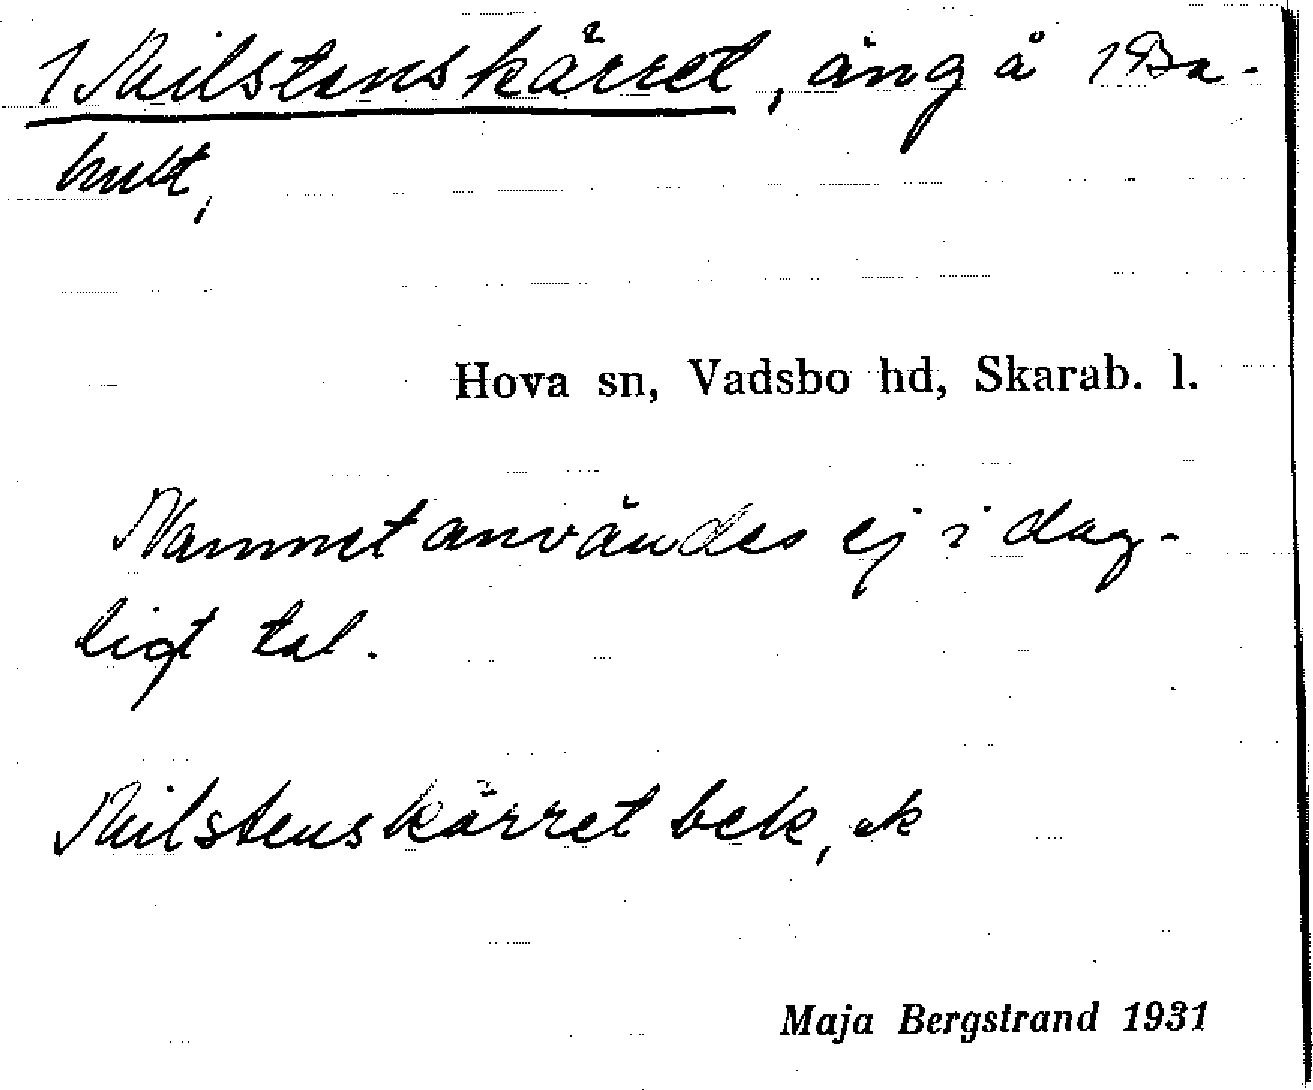 1 Milstenskärret, äng å 1 Ba-
hult,
Hova sn, Vadsbo hd, Skarab. l.
Namnet användes ej i dag-
ligt tal.
Milstenskärret bek, ek
Maja Bergstrand 1931